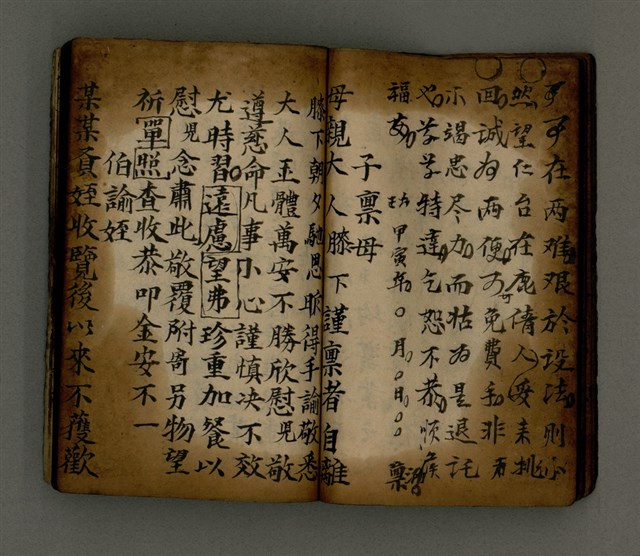 子在两难艰於设法則必
然望仁台在鹿僱人受未挑
回誠为两便可免費手非
不竭忠尽力而姑为是退託
也草草特達乞恕不恭順候
福安 甲寅年〇月〇日 稟
子稟母
母親大人膝下謹稟者自離
膝下朝夕馳思昨得手諭敬悉
大人玉體萬安不勝欣慰兒敬
遵慈命凡事小心謹慎决不效
尤時習遠慮望弗珍重加餐以
慰兒念肅此敬覆附寄另物望
祈單照查收恭叩金安不一
伯諭姪
某某賢姪收覽後以來不獲歡